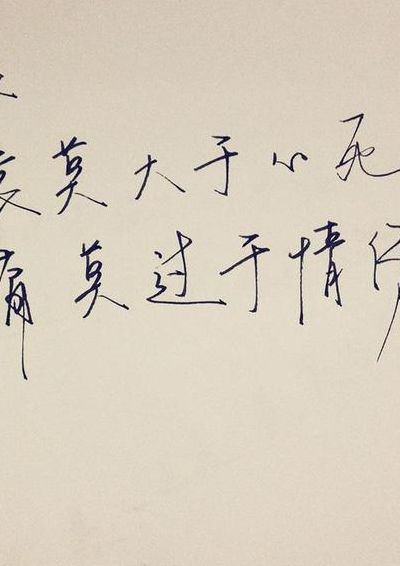 哀莫大于心死
痛莫过于情伤